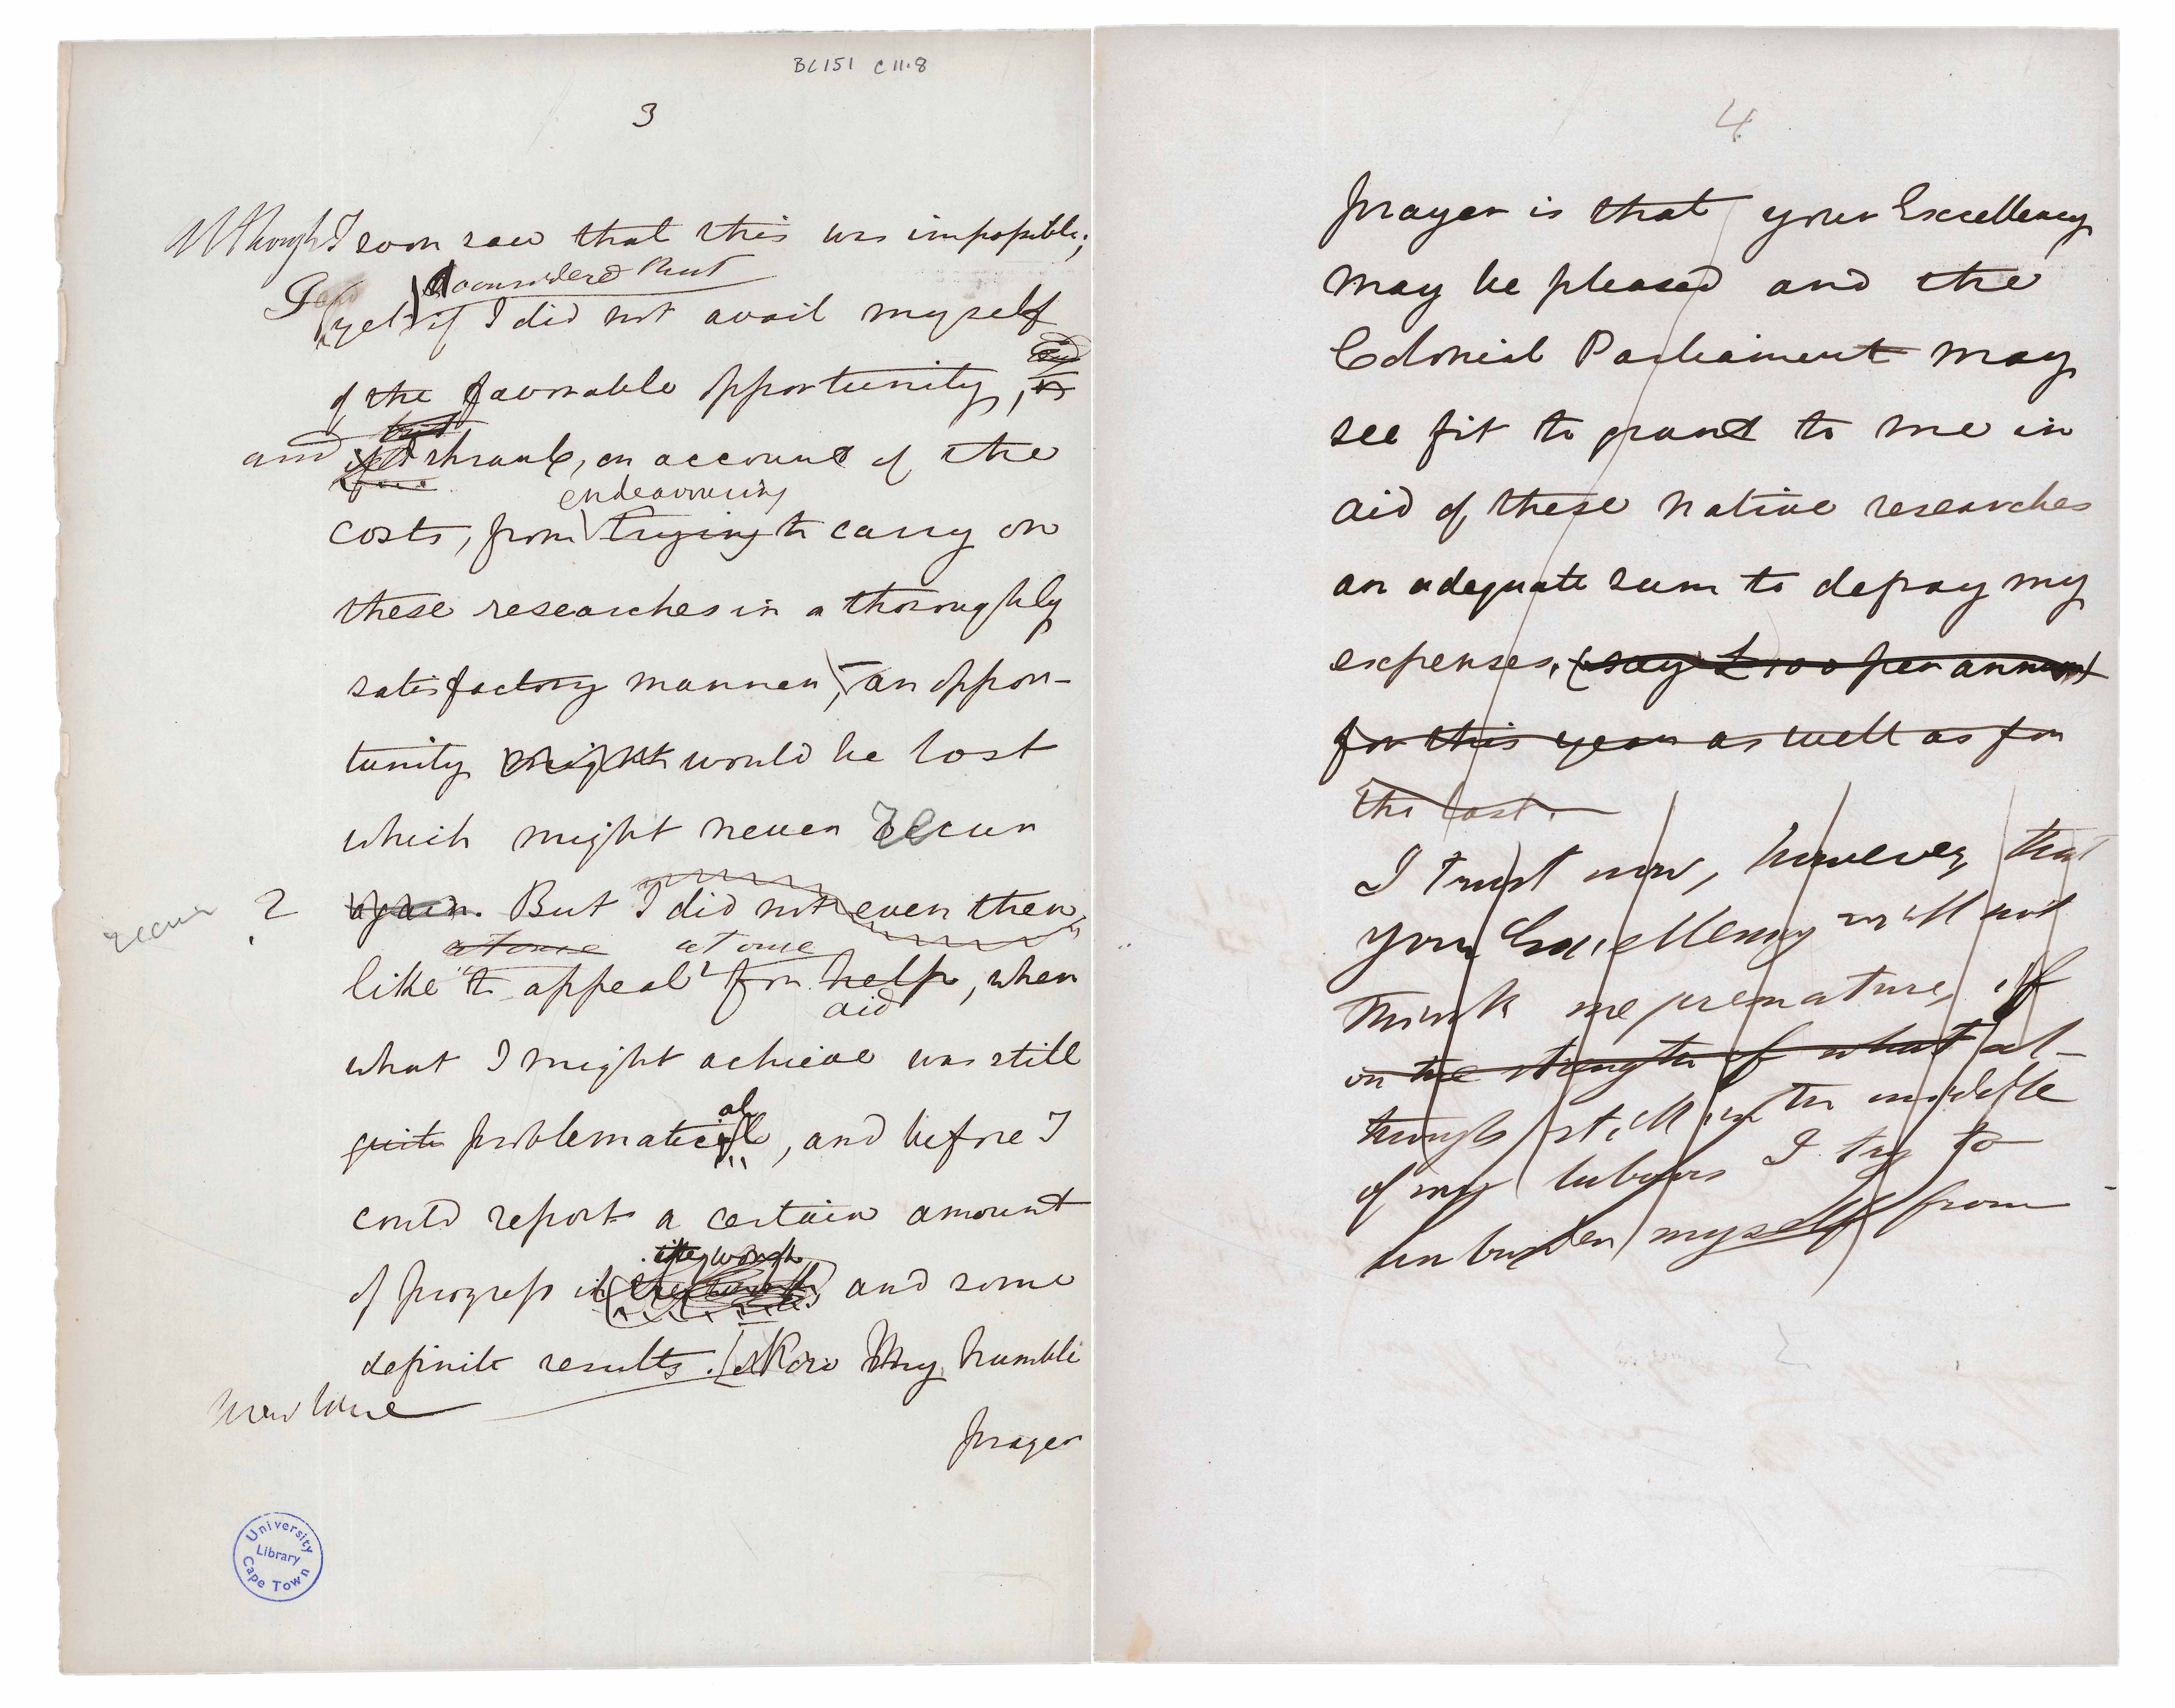 BC151 C11.8
3
Although I soon saw that this was impossible;
I considered that
yet if I did not avail myself
of the favorable opportunity,
and shrank, on account of the
endeavouring
costs, from trying to carry on
these researches in a thoroughly
satisfactory manner, an oppor-
tunity might would be lost
which might never recur
recur ? again. But I did not even then
at once at once
like to appeal for help, when
aid
what I might achieve was still
quite problematical, and before I
al
could report a certain amount
the work
of progress in and some
definite results. My humble
New line
prayer
University
Library
Cape Town
4
prayer is that your Excellency
may be pleased and the
Colonial Parliament may
see fit to grant to me in
aid of these native researches
an adequate sum to defray my
expenses, (say £100 per annum)
for this year as well as for
the last.
I trust now, however, that
your Excellency will not
think me premature, if
on the strength of what al-
though still in the middle
of my labours I try to
unburden myself from